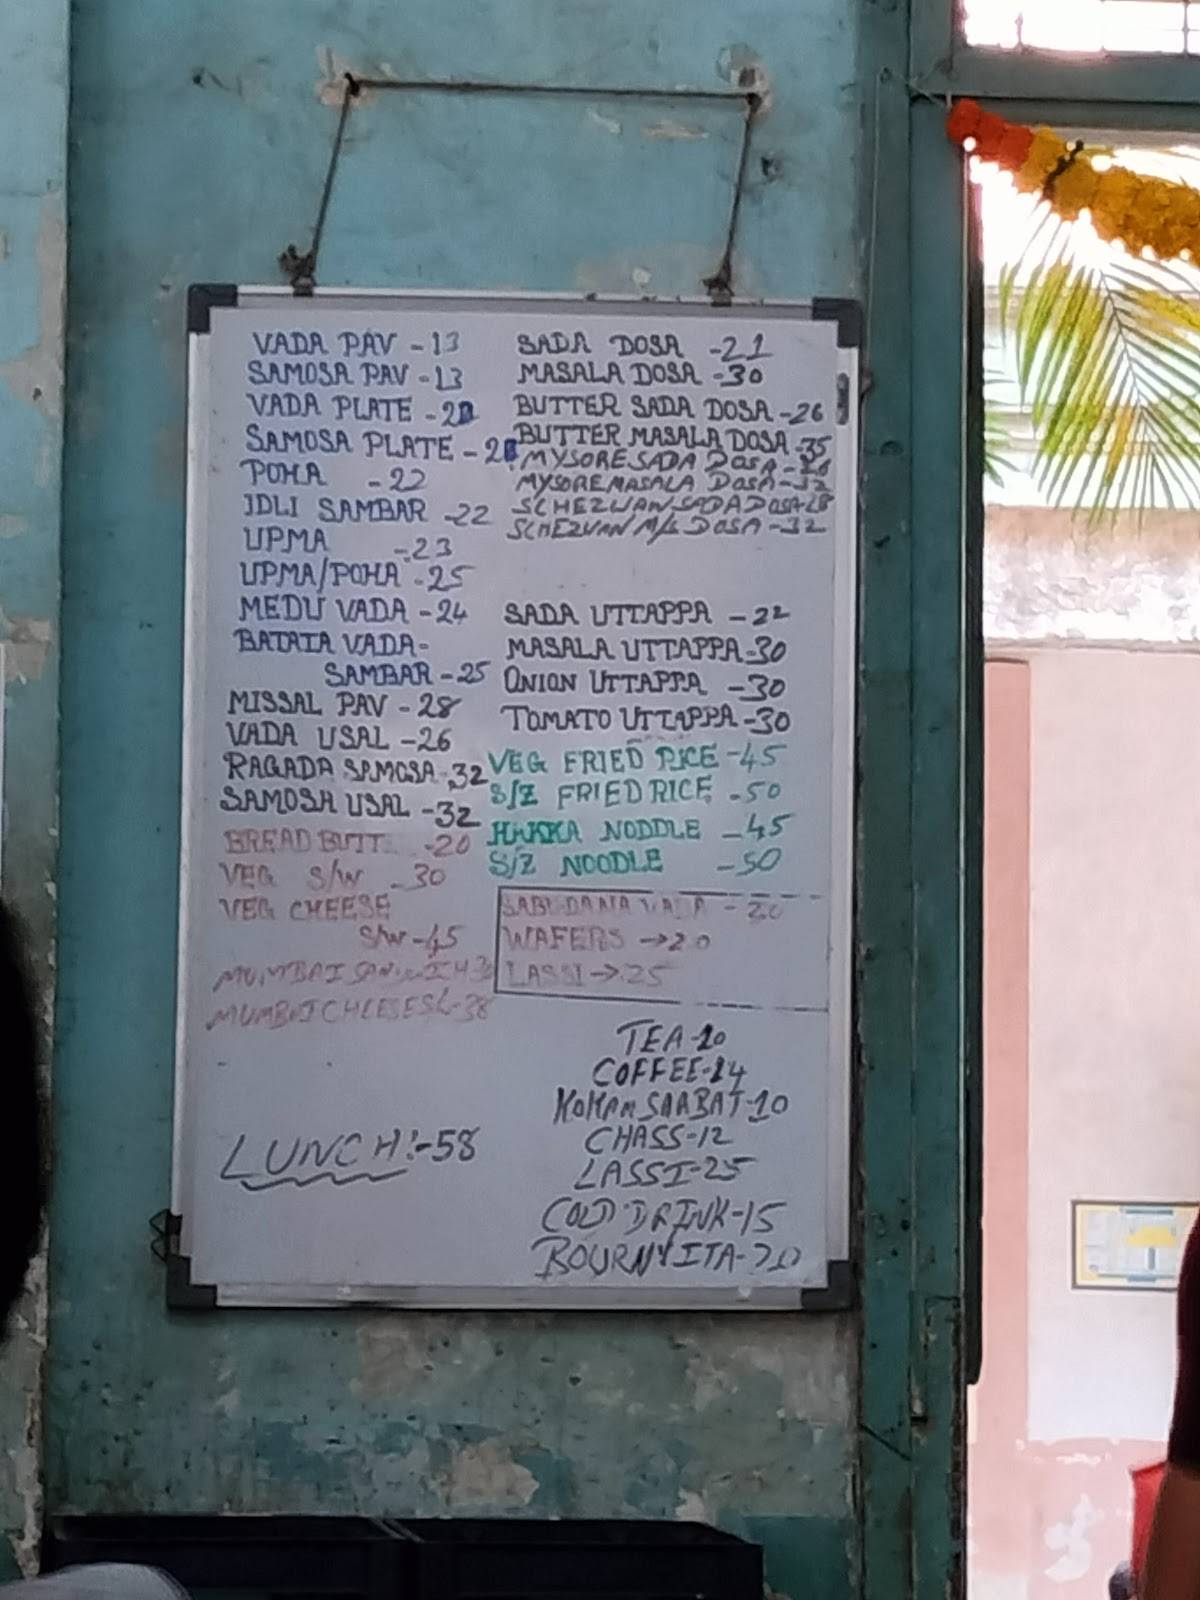 VADA PAV - 13
SAMOSA PAV - 13
VADA PLATE -
SAMOSA PLATE -
POHA - 22
IDLI SAMBAR - 22
UPMA - 23
UPMA/POHA - 25
MEDU VADA - 24
BATATA VADA-
SAMBAR - 25
MISSAL PAV - 28
VADA USAL - 26
RAGADA SAMOSA - 32
SAMOSA USAL - 32
BREAD BUTT - 20
VEG S/W - 30
VEG CHEESE
S/W - 45
MUMBAI SANDWICH
MUMBAI CHEESE - 38
LUNCH:-58
SADA DOSA - 21
MASALA DOSA - 30
BUTTER SADA DOSA - 26
BUTTER MASALA DOSA - 35
MYSORE SADA DOSA -
MYSORE MASALA DOSA - 32
SCHEZWAN SADA DOSA - 28
SCHEZWAN M/S DOSA - 32
SADA UTTAPPA - 22
MASALA UTTAPPA - 30
ONION UTTAPPA - 30
TOMATO UTTAPPA - 30
VEG FRIED RICE - 45
S/Z FRIED RICE - 50
HAKKA NODDLE - 45
S/Z NOODLE - 50
SABUDANA VADA - 20
WAFERS → 20
LASSI → 25
TEA - 10
COFFEE - 14
KOKAM SARBAT - 10
CHASS - 12
LASSI - 25
COLD DRINK - 15
BOURNVITA - 20